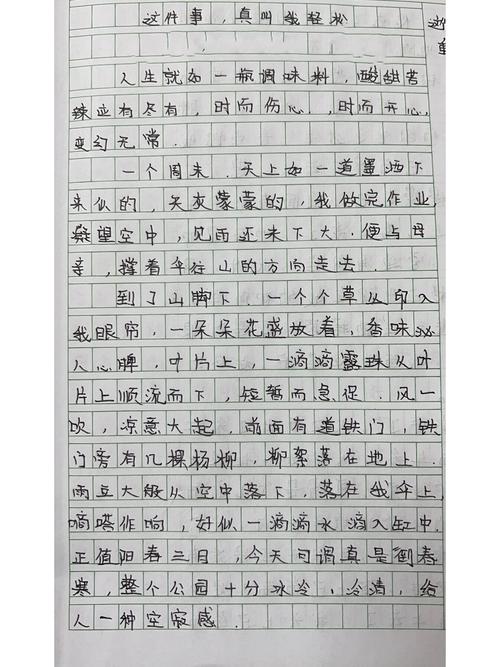 这件事，真叫我轻松
人生就如一瓶调味料，酸甜苦
辣应有尽有，时而伤心，时而开心，
变幻无常．
一个周末．天上如一道墨洒下
来似的，天灰蒙蒙的，我做完作业，
凝望空中，见雨还未下大．便与母
亲，撑着伞往山的方向走去．
到了山脚下，一个个草丛印入
我眼帘，一朵朵花盛放着，香味沁
人心脾，叶片上，一滴滴露珠从叶
片上顺流而下，短暂而急促．风一
吹，凉意大起．前面有道铁门，铁
门旁有几棵杨柳，柳絮落在地上．
雨豆大般从空中落下，落在我伞上，
嘀嗒作响，好似一滴滴水滴入缸中．
正值阳春三日，今天可谓真是倒春
寒，整个公园十分冰冷，冷清，给
人一种空寂感．